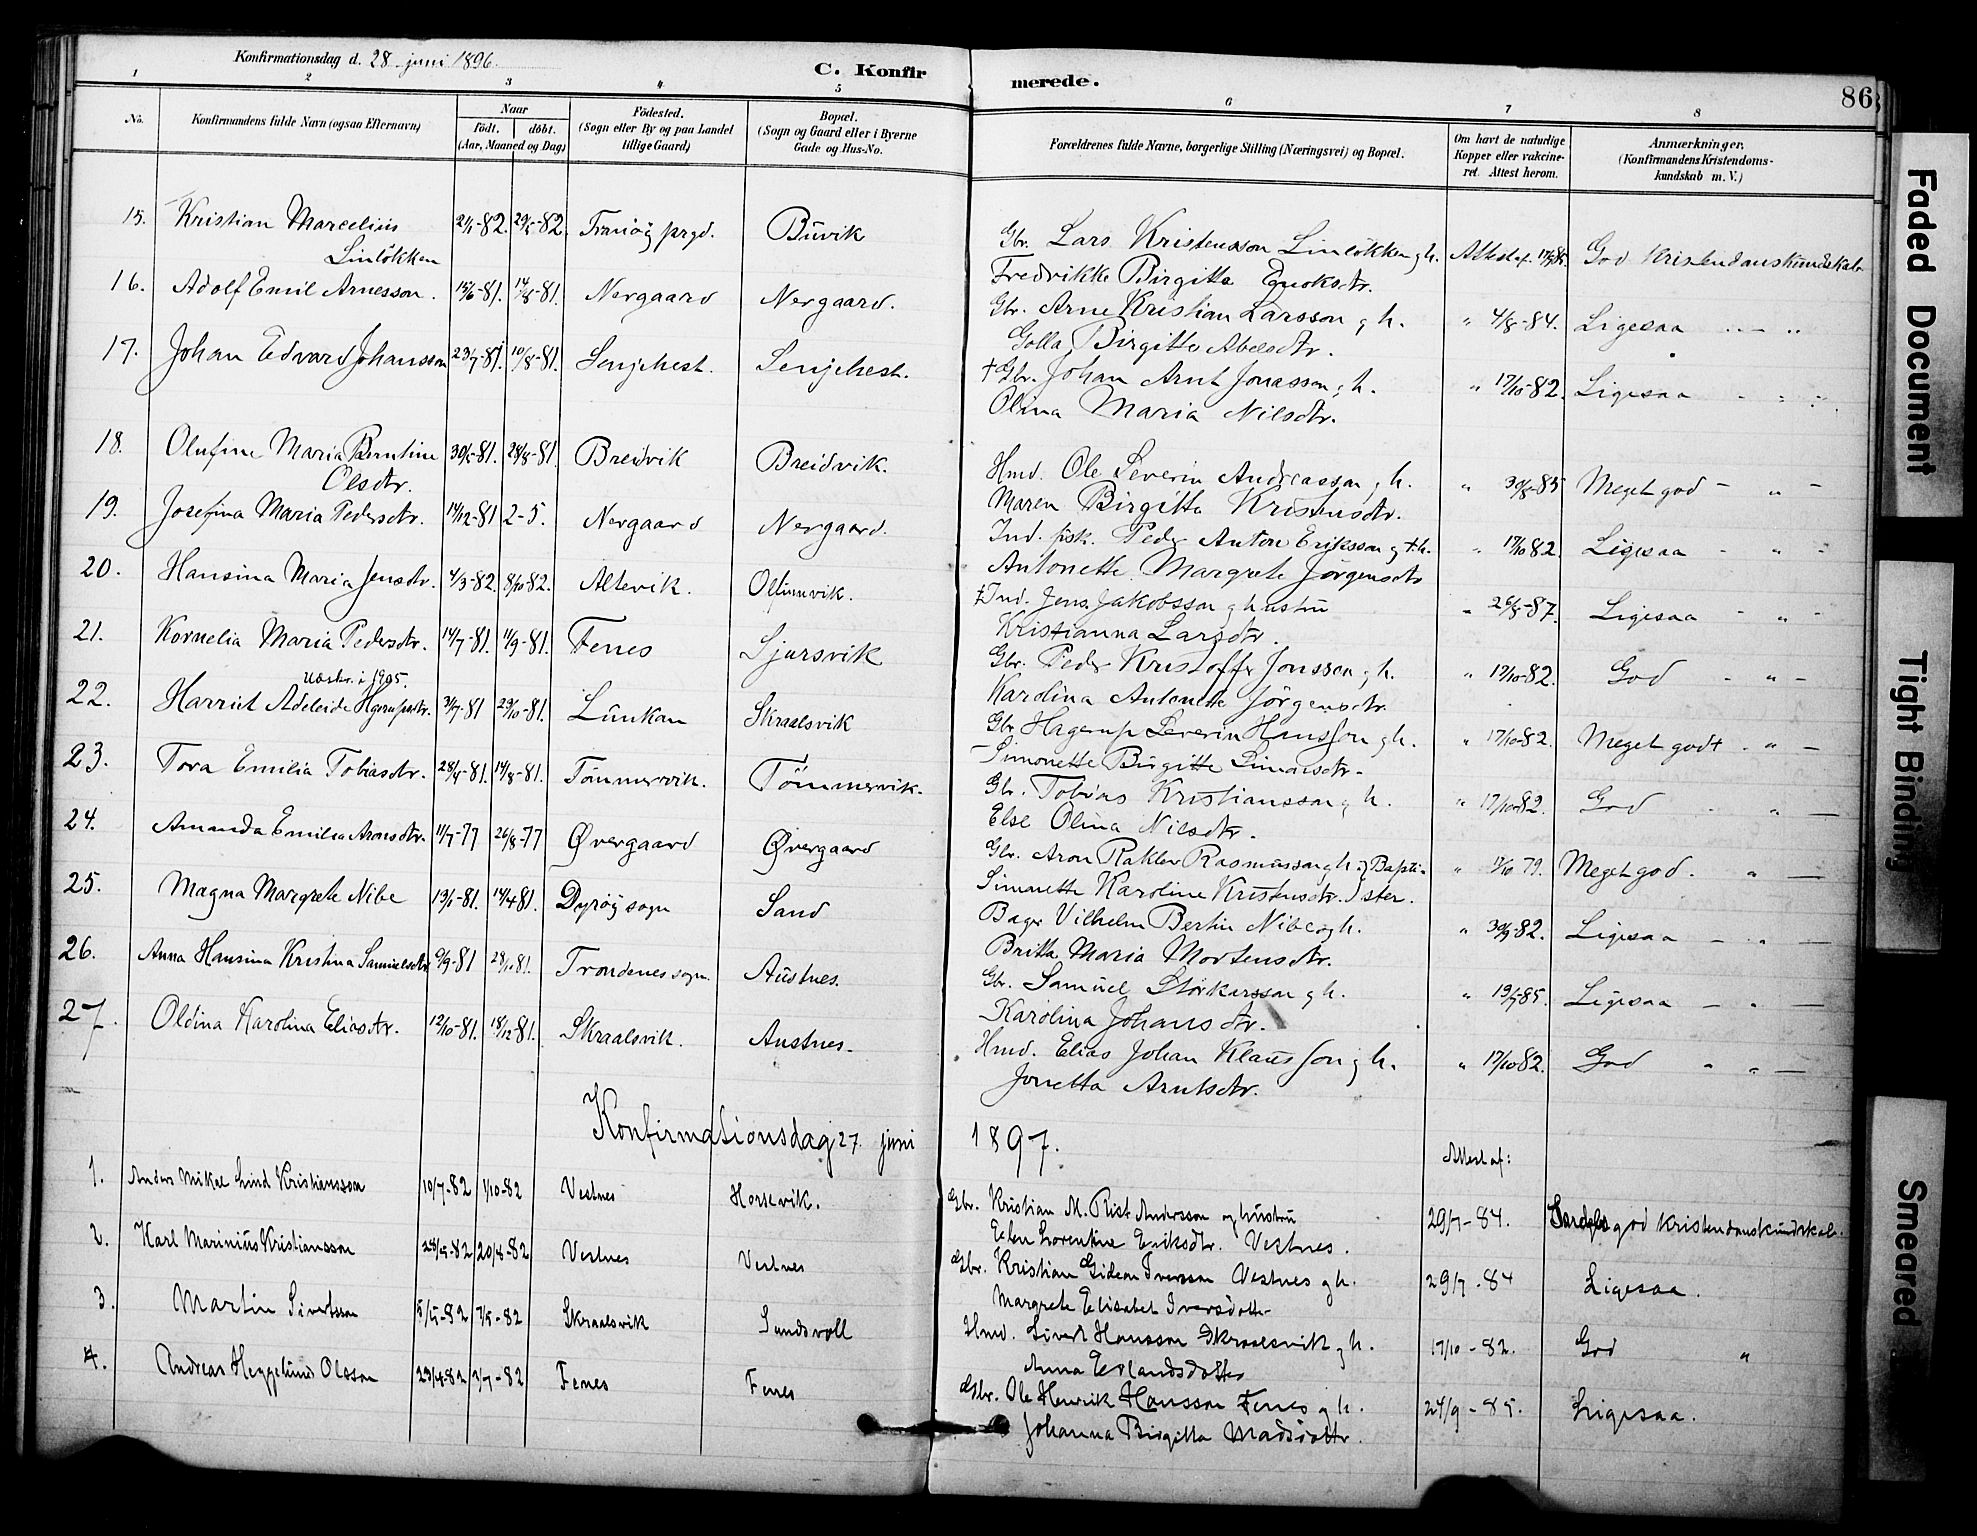 Konfirmationsdag d. 28 juni 1896.
C. Konfirmerede.
86
1 2 3 4 5 6 7 8
No. Konfirmandens fulde Navn (ogsaa Efternavn) Naar födt. döbt. (Aar, Maaned og Dag) Födested. (Sogn eller By og paa Landet tillige Gaard) Bopæl. (Sogn og Gaard eller i Byerne Gade og Hus-No. Forældrenes fulde Navne, borgerlige Stilling (Næringsvei) og Bopæl. Om havt de naturlige Kopper eller vakcineret. Attest herom. Anmærkninger. (Konfirmandens Kristendomskundskab m. V.)
15. Kristian Marcelius 2/1-82. 29/5-82. Tranöy prgd. Buvik Gbr. Lars Kristensson Linløkken g h. Attest af God Kristendomskundskab
Linløkken Fredrikke Birgitta Enoksdtr.
16. Adolf Emil Arnesson. 15/6-81. 14/8-81. Nergaard Nergaard. Gbr. Arne Kristian Larsson g h. " 4/8-84. Ligesaa - "
Golla Birgitte Abelsdtr.
17. Johan Edvard Johansson 23/7-81. 10/8-81. Senjehest. Senjehest. † Gbr. Johan Arnt Jonasson g h. " 17/10-82. Ligesaa - " -
Olina Maria Nilsdtr.
18. Olufine Maria Berntine 30/5-81. 28/8-81. Breidvik Breidvik. Hmd. Ole Severin Andreasson g h. " 30/8-85 Meget god - " -
Olsdtr. Maren Birgitta Kristensdtr.
19. Josefina Maria Pedersdtr. 14/12-81 2-5. Nergaard Nergaard. Ind. fisk. Peder Anton Eriksson g † h. " 17/10 82. Ligesaa - " -
Antonette Margrete Jörgensdtr
20. Hansina Maria Jensdtr. 4/3-82. 8/10-82. Altevik. † Ind. Jens Jakobsson g hustru " 26/8-87. Ligesaa - " -
Kristianna Larsdtr.
21. Kornelia Maria Pedersdtr. 14/7-81. 11/9-81. Fenes Ljarsvik Gbr. Peder Kristoffer Jonsson g h. " 17/10-82. God - " -
Karolina Antonette Jörgensdtr.
Udskr. i 1905.
22. Harriet Adeleide Hgerupsdtr. 3/7-81 29/10-81. Lunkan Skraalsvik Gbr Hagerup Severin Hansson g h. " 17/10-82. Meget godt . " -
Simonette Birgitte Simonsdtr.
23. Tora Emilia Tobiasdtr. 28/4-81. 14/8-81. Tömmervik. Tömmervik. Gbr. Tobias Kristiansson g h. " 17/10-82. God " -
Else Olina Nilsdtr.
24. Amanda Emilia Aronsdtr. 11/7-77 26/8-77 Øvergaard Øvergaard Gbr. Aron Rakler Rasmusson g h. } Bapti- " 79. Meget god. " -
Simonette Karoline Kristensdtr. } ster.
25. Magna Margrete Nibe 13/1-81. 14/4 81. Dyröy sogn Sand Bager Vilhelm Bertin Nibe og h. " 30/9-82. Ligesaa - " -
Britta Maria Mortensdtr.
26. Anna Hansina Kristina Samuelsdtr. 9/9-81 28/10 81. Trondenes sogn. Austnes. Gbr. Samuel Störkersson g h. " 19/5-85. Ligesaa - " -
Karolina Johansdtr.
27. Oldina Karolina Eliasdtr. 12/10-81. 18/12 81. Skraalsvik. Austnes. Hmd. Elias Johan Klausson g h. " 17/10 82. God " " -
Jonetta Arntsdtr.
Konfirmationsdag 27. juni 1897.
Attest af:
1. Anders Mikal Lind Kristiansson 10/7-82 1/10-82 Vestnes Horsevik. Gbr. Kristian M. Rist Andersson og hustru 29/7-84. god Kristendomskundskab.
Elen Lorentine Eriksdtr. Vestnes.
2. Karl Marinius Kristiansson 28/5-82 20/8-82 Vestnes Vestnes Gbr. Kristian Gideon Iversson Vestnes g h. 29/7-84 Ligesaa.
Margrete Elisabet Iversdotter
3. Martin Sivertsson 5/5-82 7/5-82 Skraalsvik Sundsvoll Hmd. Sivert Hansson Skraalsvik g h. 17/10-82. God "
Anna Erlandsdotter
4. Andreas Heggelund Olsson 23/4-82 2/7-82 Fenes Fenes Gbr. Ole Henrik Hansson Fenes g h. 24/9-85. Ligesaa.
Johanna Birgitta Madsdottr.
Faded Document
Tight Binding
Smeared